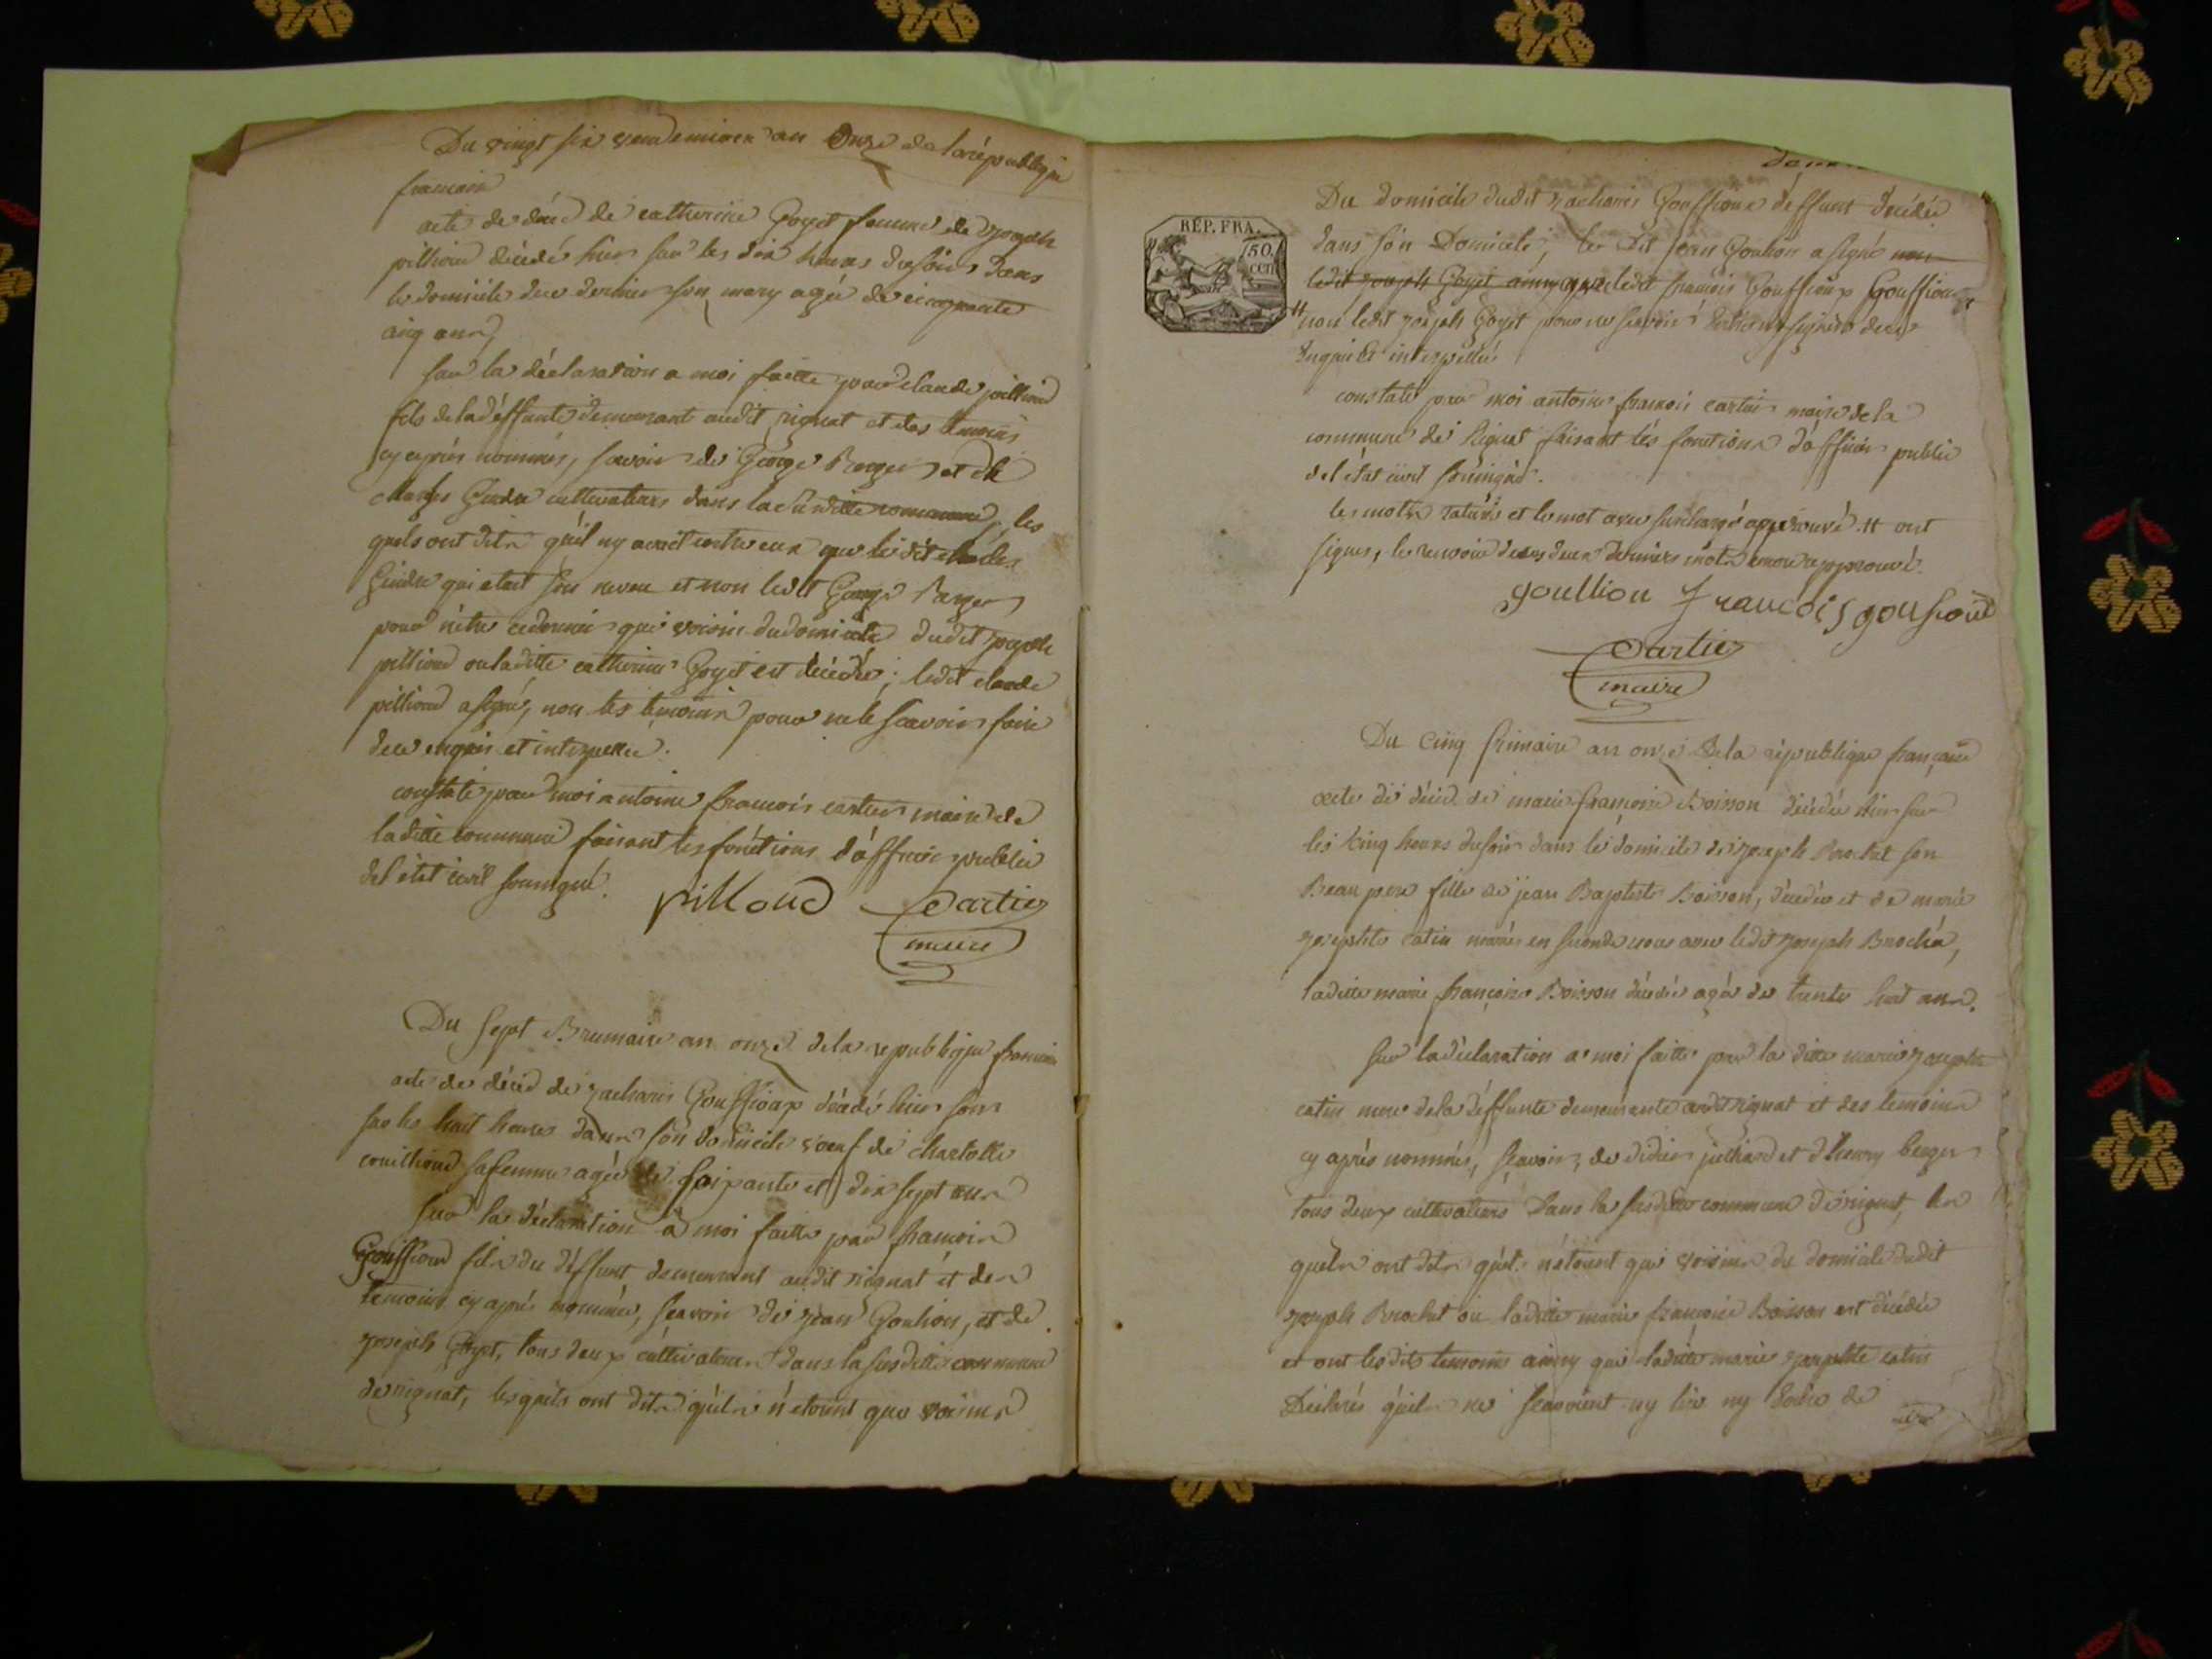 Du vingt six vendemiaire an Onze de la républiq̃ue
francaise
acte de décè de catherine Goyet femme de Joseph
pillioud décédé hier sur les dix heures du soir dans
le domicile due dernier son mary agée de cinquante
cinq ans
sur la déclaration a moi faitte par claude pillioud
fils de la déffunte demeurant audit rignat et des temoins
cy après nommés, savoir de George Berger et de
charles Gindre cultivateurs dans la susditte commune, les
quels ont dits qu'il ny avait entre eux que le dit charles
Gindre qui etait son neveu et non ledit George Berger
pour n'être ce dernier que voisin du domicile dudit joseph
pillioud ou laditte catherine Goyet est décédée; ledit claude
pillioud a signé, non les temoins pour ne le scavoir faire
de ce enquis et interpellés.
constaté par moi antoine francois cartier maire de
laditte commune faisant les fonctions d'officier public
de l'état civil soussigné.
pillioud Cartier
maire
Du sept Brumaire an onze de la republique francaise
acte de décès de zacharie Gouffioux décédé hier soir
sur les huit heures dans son domicile veuf de charlotte
couillioud sa femme agée de soixante et dix sept ans
sur la déclaration à moi faitte par francois
Gouffioud fils du déffunt demeurant audit rignat et des
temoins cy après nommés, scavoir de jean Goulion, et de
joseph Goyet, tous deux cultivateurs dans la susditte commune
de rignat, les quels ont dits qu'ils n'étoient que voisins
Du domicile dudit zacharie Gouffioux deffunt décédée
dans son Domicile, le dit jean Goulion a signé non
ledit joseph Goyet ainsy que ledit francois Gouffioux Gouffioux
non ledit joseph Goyet pour ne scavoir de ce
enquis et interpellé
constaté par moi antoine francois cartier maire de la
commune de Rignat faisant les fonctions d'officier public
de l'état civil soussigné.
les mots raturés et le mot avec surchargé approuvé # ont
signés, le renvoie de ces deux derniers mots encore approuvé.
goullion francois goufioud
Cartier
maire
REP. FRA.
50.
CEN
Du cinq frimaire an onze de la république française
acte de décès de marie francoise Boisson décédée hier sur
les cinq heures du soir dans le domicile de joseph Brochet son
Beau pere fille de jean Baptiste Boisson, décédée et de marie
josephte catin mariée en seconde noces avec ledit joseph Brochet,
laditte marie françoise Boisson décédée agée de trente huit ans.
sur la déclaration a moi faitte par la ditte marie josephte
catin mere de la déffunte demeurante audit rignat et des temoins
cy après nommés, scavoir, de didier juilliard et d'henry berger
tous deux cultivateurs dans la susditte commune de rignat, les
quels ont dits qu'ils n'étoient que voisins du domicile dudit
joseph Brochet où laditte marie francoise Boisson est décédée
et ont les dits temoins ainsy que laditte marie josephte catin
Déclarés qu'ils ne scavoient ny lire ny écrire de